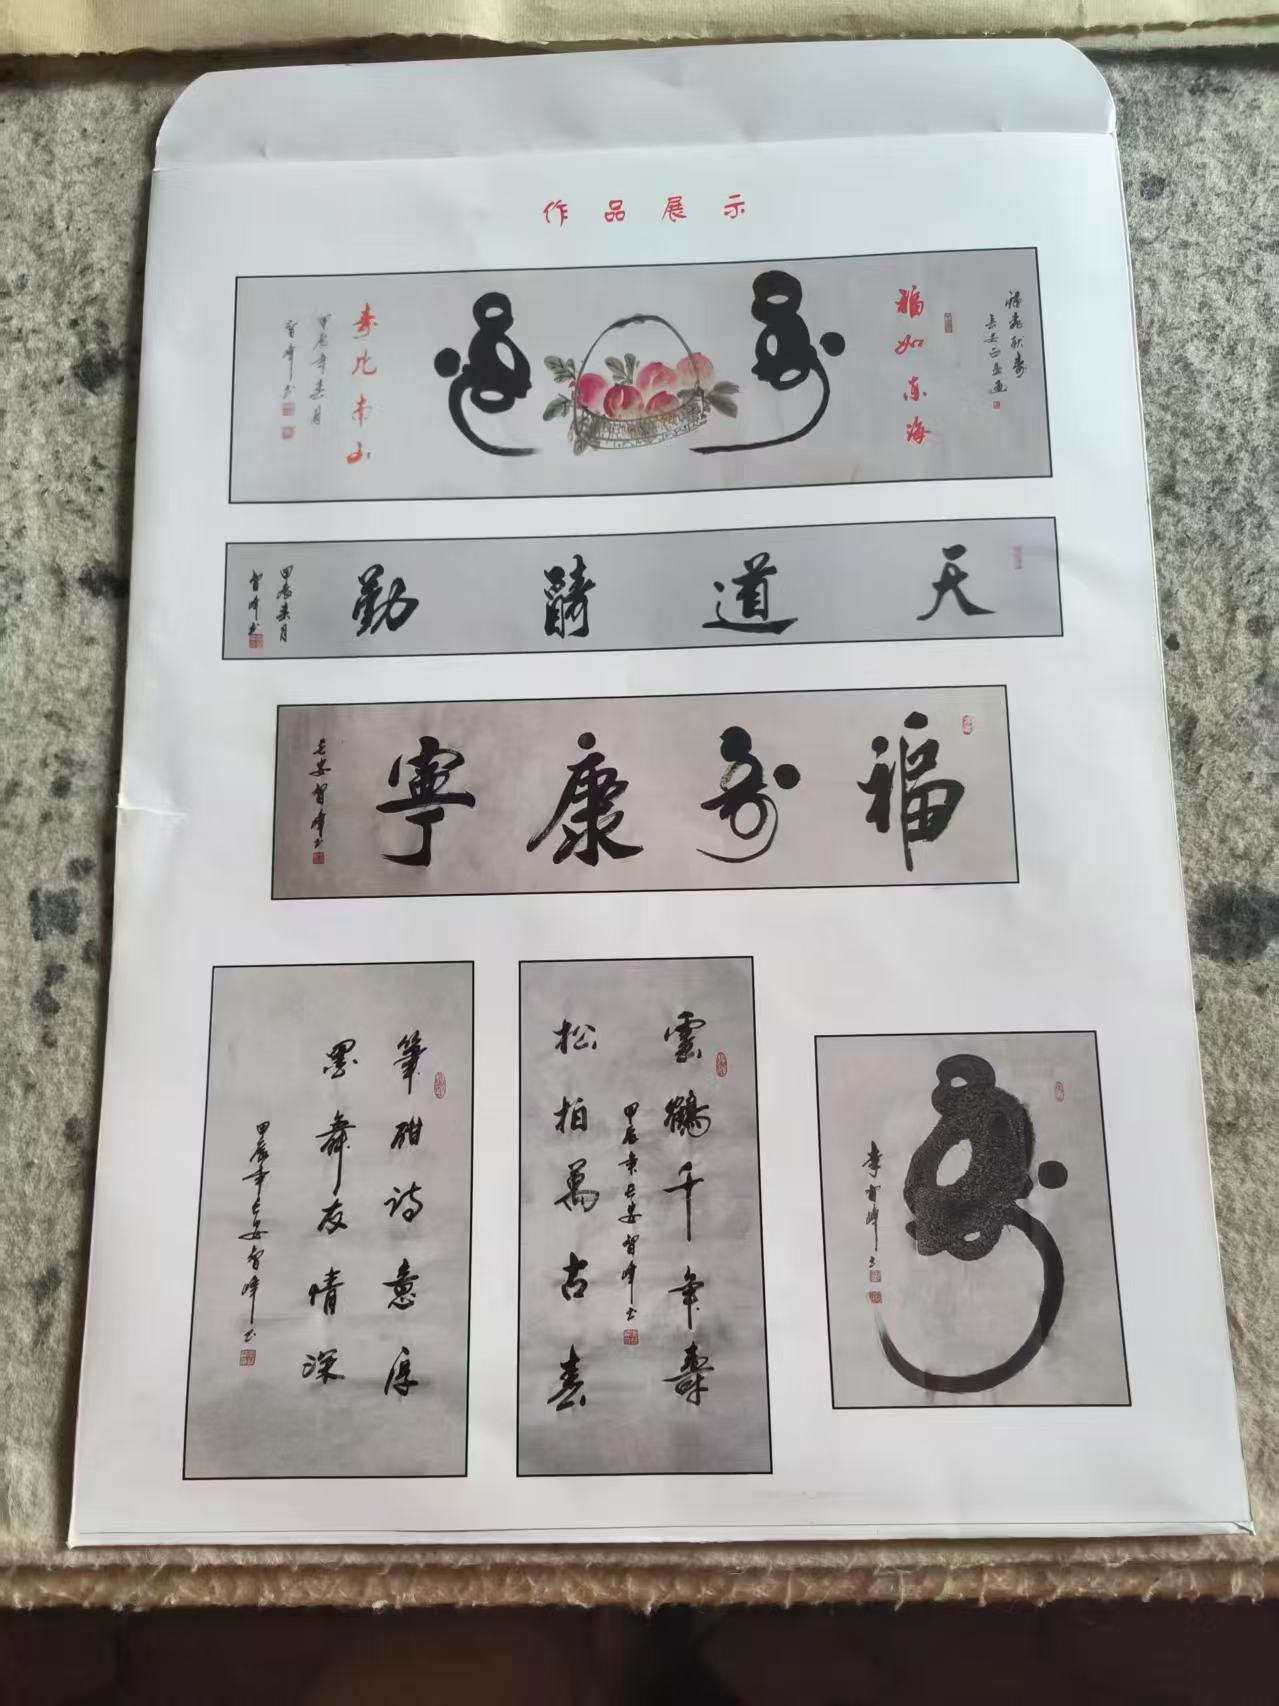 作品展示
福如东海
寿比南山
甲辰年春月
智峰书
天道酬勤
甲辰春月
智峰书
福寿康宁
长安智峰书
筆酣詩意厚
墨舞友情深
甲辰年长安智峰书
雲鶴千年壽
松柏萬古春
甲辰年长安智峰书
寿
李智峰书